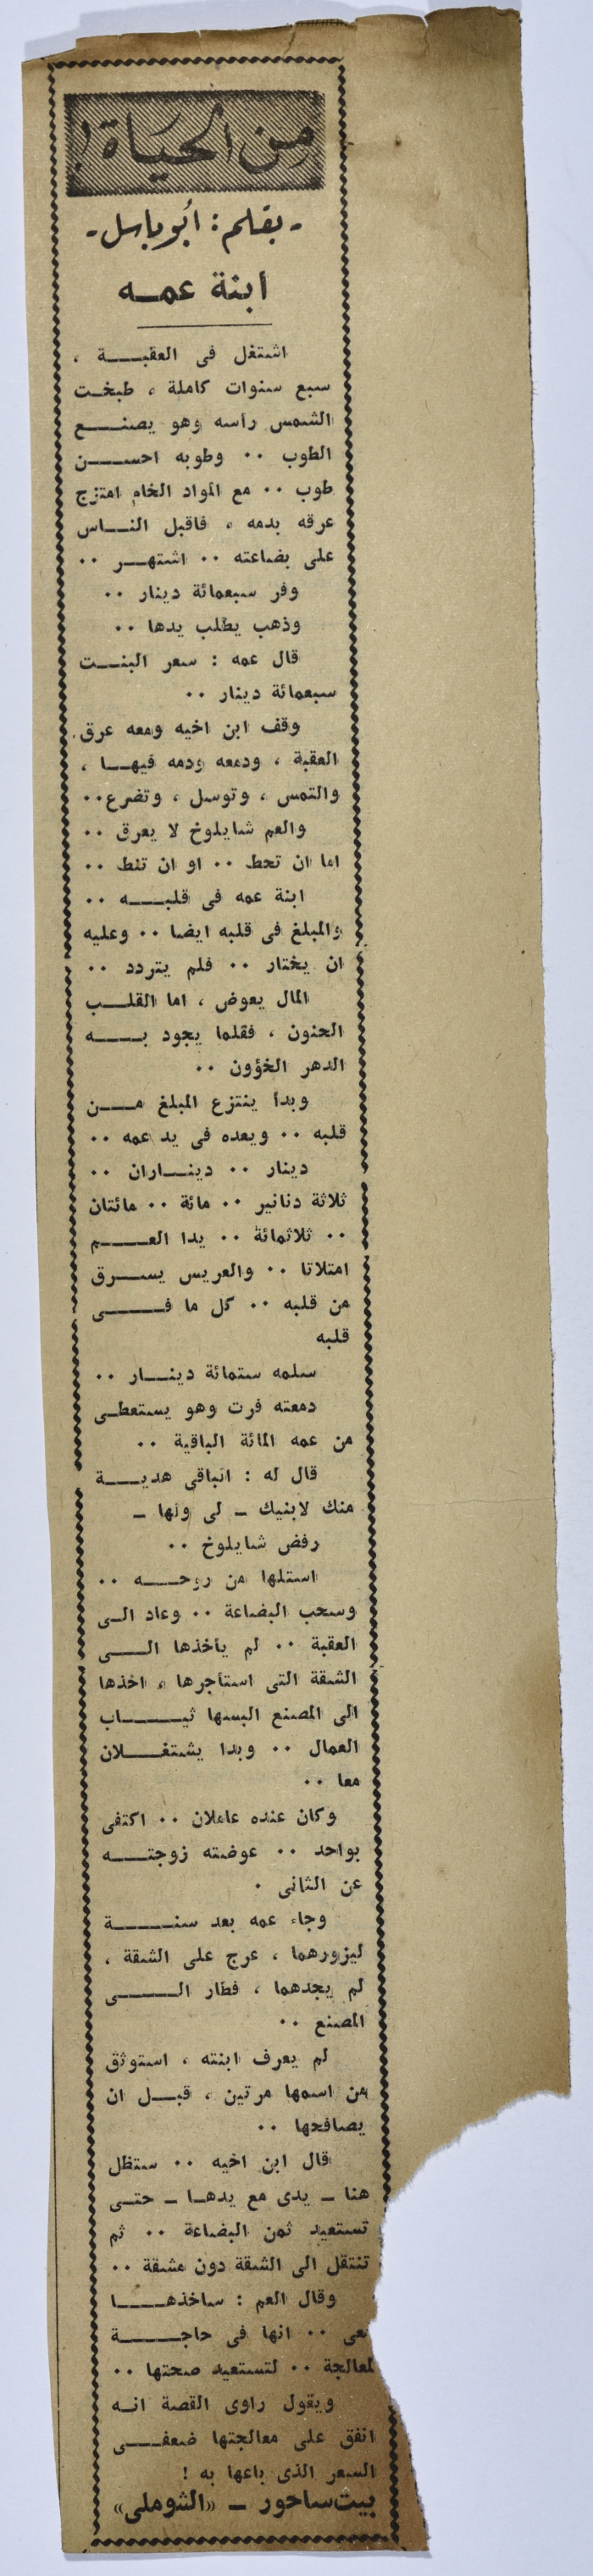 من الحياة !
- بقلم : أبو باسل -
ابنة عمــه
اشتغل فى العقبــــة ،
سبع سنوات كاملة ، طبخت
الشمس رأسه وهو يصنــــع
الطوب ٠٠ وطوبه احســــن
طوب ٠٠ مع المواد الخام امتزج
عرقه بدمه ، فاقبل النــاس
على بضاعته ٠٠ اشتهــر ٠٠
وفر سبعمائة دينار ٠٠
وذهب يطلب يدها ٠٠
قال عمه : سعر البنــت
سبعمائة دينار ٠٠
وقف ابن اخيه ومعه عرق
العقبة ، ودمعه ودمه فيهــا ،
والتمس ، وتوسل ، وتضرع ٠٠
والعم شايلوخ لا يعرق ٠٠
اما ان تحط ٠٠ او ان تنط ٠٠
ابنة عمه فى قلبــــه ٠٠
والمبلغ فى قلبه ايضا ٠٠ وعليه
ان يختار ٠٠ فلم يتردد ٠٠
المال يعوض ، اما القلــب
الحنون ، فقلما يجود بــــه
الدهر الخؤون ٠٠
وبدأ ينتزع المبلغ مــــن
قلبه ٠٠ ويعده فى يد عمه ٠٠
دينار ٠٠ دينــاران ٠٠
ثلاثة دنانير ٠٠ مائة ٠٠ مائتان
٠٠ ثلاثمائة ٠٠ يدا العــــم
امتلاتا ٠٠ والعريس يســـرق
من قلبه ٠٠ كل ما فــــى
قلبه
سلمه ستمائة دينــار ٠٠
دمعته فرت وهو يستعطــى
من عمه المائة الباقية ٠٠
قال له : الباقى هديــــة
منك لابنيك ـ لى ولها ـ
رفض شايلوخ ٠٠
استلها من روحــــه ٠٠
وسحب البضاعة ٠٠ وعاد الــى
العقبة ٠٠ لم يأخذها الــــى
الشقة التى استأجرها ، اخذها
الى المصنع البسها ثيــــاب
العمال ٠٠ وبدا يشتغــــلان
معا ٠٠
وكان عنده عاملان ٠٠ اكتفى
بواحد ٠٠ عوضته زوجتــــه
عن الثانى ٠
وجاء عمه بعد سنــــة
ليزورهما ، عرج على الشقة ،
لم يجدهما ، فطار الــــى
المصنع ٠٠
لم يعرف ابنته ، استوثق
من اسمها مرتين ، قبــل ان
يصافحها ٠٠
قال ابن اخيه ٠٠ ستظل
هنا ـ يدى مع يدهــا ـ حتــى
تستعيد ثمن البضاعة ٠٠ ثم
تنتقل الى الشقة دون مشقة ٠٠
وقال العم : ساخذهــــا
معى ٠٠ انها فى حاجــــة
لمعالجة ٠٠ لتستعيد صحتها ٠٠
ويقول راوى القصة انــه
انفق على معالجتها ضعفــــى
السعر الذى باعها به !
بيت ساحور ـ «الشوملى»